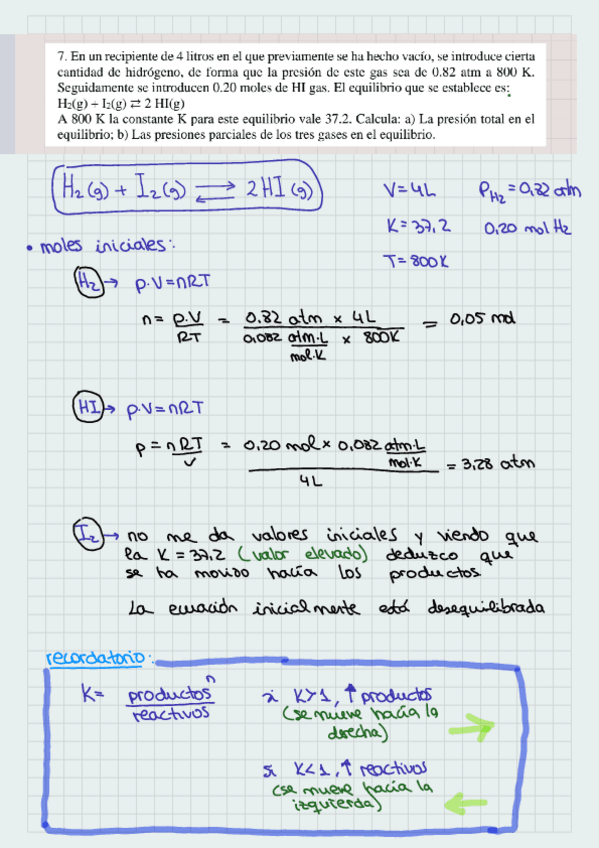 7. En un recipiente de 4 litros en el que previamente se ha hecho vacío, se introduce cierta
cantidad de hidrógeno, de forma que la presión de este gas sea de 0.82 atm a 800 K.
Seguidamente se introducen 0.20 moles de HI gas. El equilibrio que se establece es:
H₂(g) + I₂(g) ⇄ 2 HI(g)
A 800 K la constante K para este equilibrio vale 37.2. Calcula: a) La presión total en el
equilibrio; b) Las presiones parciales de los tres gases en el equilibrio.
H₂(g) + I₂(g) ⇄ 2HI(g)
V=4L P_H₂ = 0,82 atm
K=37,2 0,20 mol H₂
T=800K
• moles iniciales:
H₂ → p·V=nRT
n = p·V / RT = 0.82 atm × 4L / 0,082 atm·L / mol·K × 800K = 0,05 mol
HI → p·V=nRT
p = nRT / V = 0,20 mol × 0,082 atm·L / mol·K / 4L = 3,28 atm
I₂ → no me da valores iniciales y viendo que
la K = 37,2 (valor elevado) deduzco que
se ha movido hacia los productos
La ecuación inicialmente está desequilibrada
recordatorio:
K = productosⁿ / reactivos
si K>1, ↑ productos
(se mueve hacia la
derecha)
si K<1, ↑ reactivos
(se mueve hacia la
izquierda)